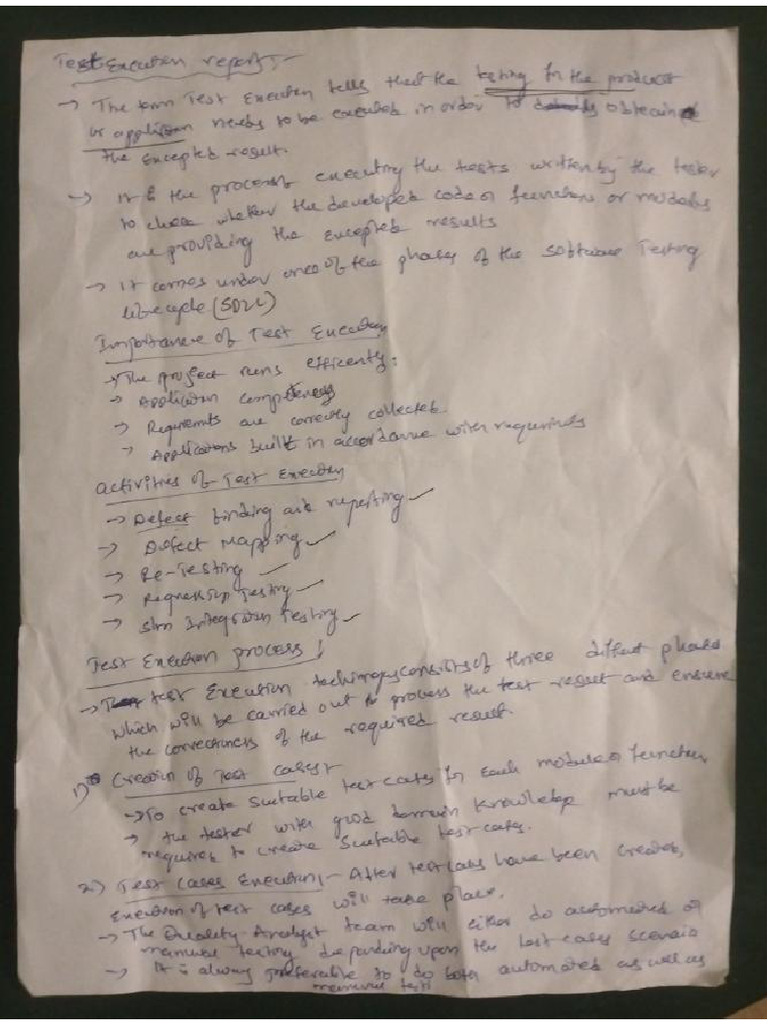 Test Execution report:-
→ The term Test Execution tells that the testing for the product
or application needs to be executed in order to obtain
the excepted result.
→ It is the process of executing the tests written by the tester
to check whether the developed code or functions or modules
are providing the excepted results
→ It comes under one of the phases of the Software Testing
Lifecycle (SDLC)
Importance of Test Execution
→ The project runs efficiently:
→ Application competency
→ Requirements are correctly collected.
→ Applications built in accordance with requirements
Activities of Test Execution
→ Defect finding and reporting ✓
→ Defect Mapping ✓
→ Re-Testing ✓
→ Regression Testing ✓
→ System Integration Testing ✓
Test Execution process:
→ test Execution technique consists of three diffent phases
which will be carried out to process the test result and ensure
the correctness of the required result.
1) Creation of Test cases:-
→ To create suitable test cases for each module or function
→ the tester with good domain knowledge must be
required to create suitable test cases.
2) Test Cases Execution:- After test cases have been created,
execution of test cases will take place.
→ The Quality-Analyst team will either do automated or
manual testing depending upon the test cases scenario
→ It is always preferable to do both automated as well as
manual testi